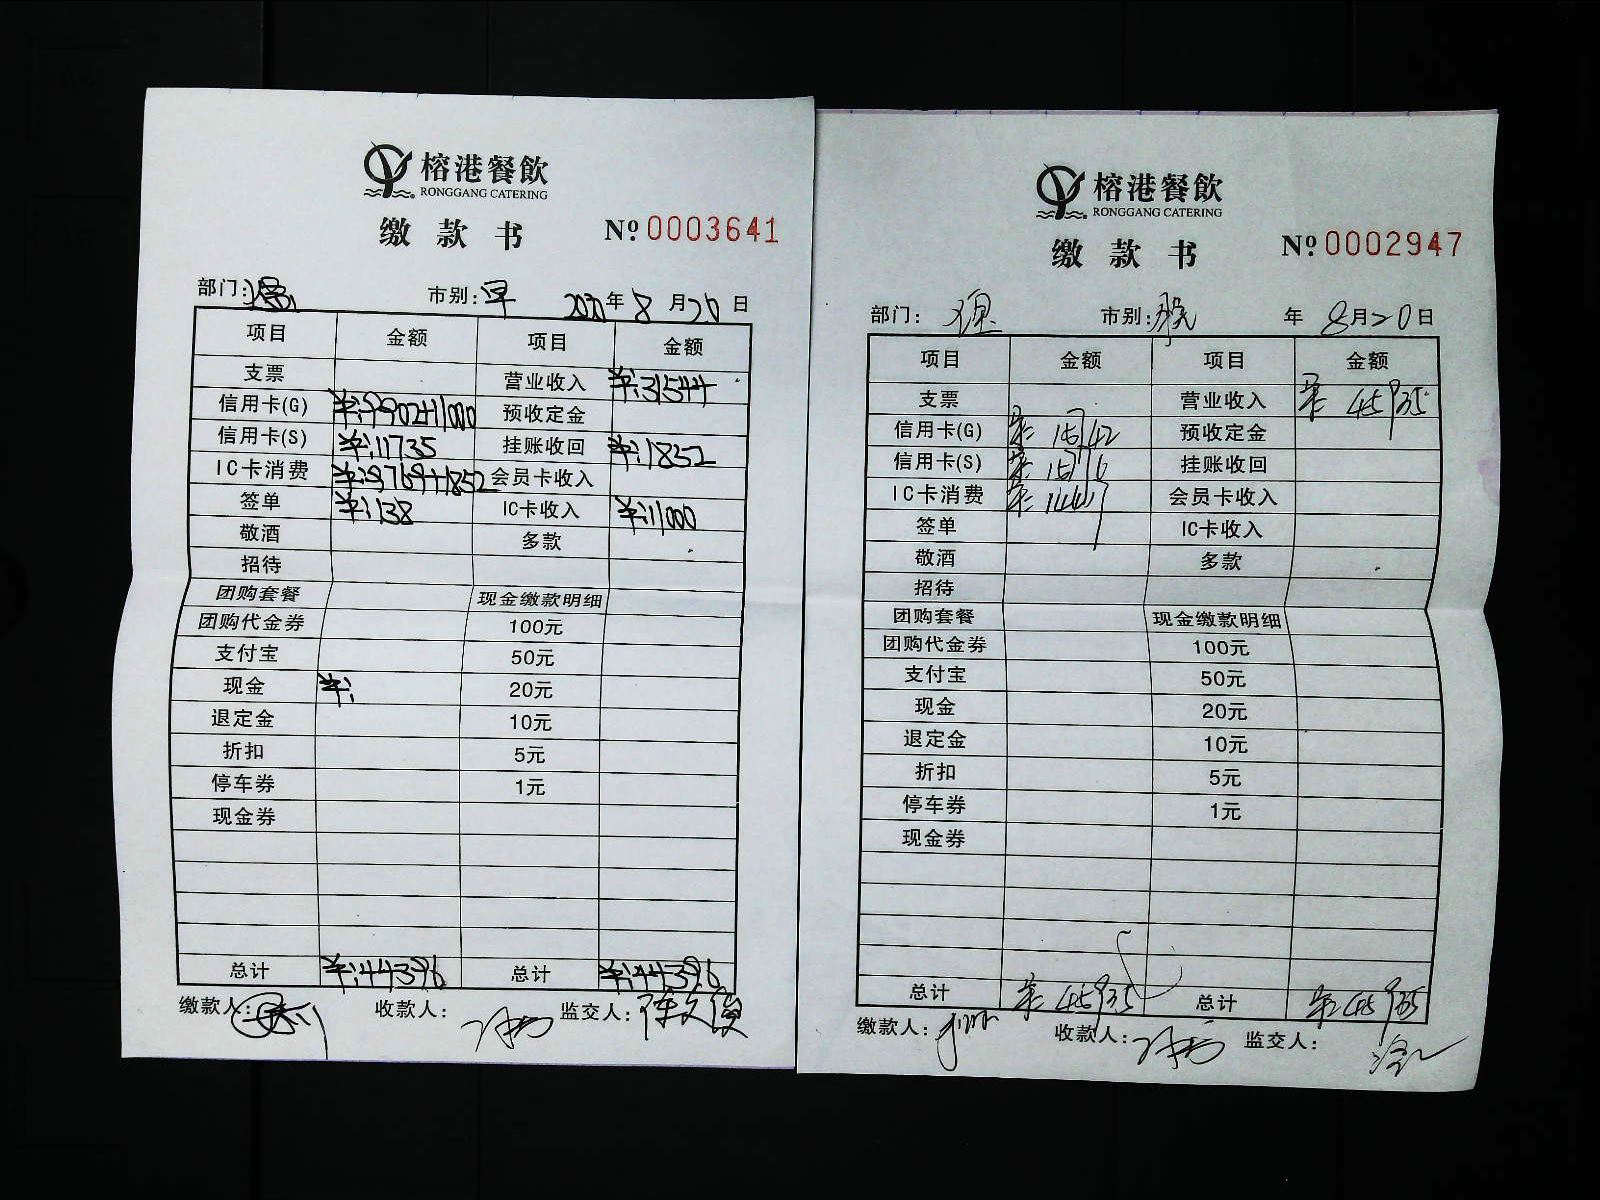 榕港餐飲
RONGGANG CATERING
缴款书 №0003641
部门: 市别:早 2020年8月20日
项目 金额 项目 金额
支票 营业收入 ¥:31544
信用卡(G) ¥:9902+11000 预收定金
信用卡(S) ¥:11735 挂账收回 ¥:1852
IC卡消费 ¥:9769+1852 会员卡收入
签单 ¥:138 IC卡收入 ¥:11000
敬酒 多款
招待
团购套餐 现金缴款明细
团购代金券 100元
支付宝 50元
现金 ¥: 20元
退定金 10元
折扣 5元
停车券 1元
现金券
总计 ¥:44396 总计 ¥:44396
缴款人: 收款人: 监交人:
榕港餐飲
RONGGANG CATERING
缴款书 №0002947
部门: 市别:晚 年8月20日
项目 金额 项目 金额
支票 营业收入 ¥:45935
信用卡(G) ¥:15742 预收定金
信用卡(S) ¥:15776 挂账收回
IC卡消费 ¥:14417 会员卡收入
签单 IC卡收入
敬酒 多款
招待
团购套餐 现金缴款明细
团购代金券 100元
支付宝 50元
现金 20元
退定金 10元
折扣 5元
停车券 1元
现金券
总计 ¥:45935 总计 ¥:45935
缴款人: 收款人: 监交人: